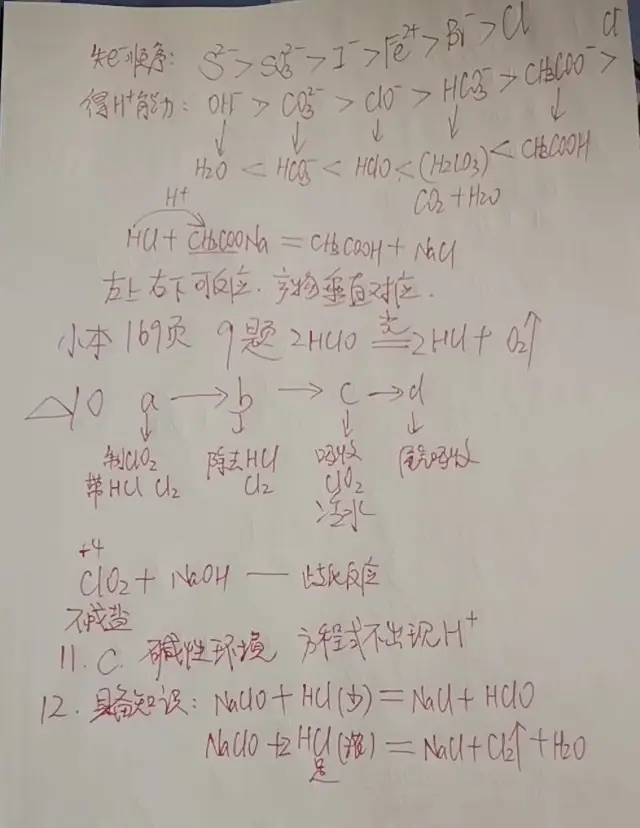 失e⁻顺序: S²⁻ > SO₃²⁻ > I⁻ > Fe²⁺ > Br⁻ > Cl⁻
得H⁺能力: OH⁻ > CO₃²⁻ > ClO⁻ > HCO₃⁻ > CH₃COO⁻ > Cl⁻
↓ ↓ ↓ ↓ ↓
H₂O < HCO₃⁻ < HClO < (H₂CO₃) < CH₃COOH
CO₂ + H₂O
H⁺
HCl + CH₃COONa = CH₃COOH + NaCl
左上右下可反应.产物垂直对应.
小本169页 9题 2HClO 光== 2HCl + O₂↑
△10 a → b → c → d
↓ ↓ ↓ ↓
制ClO₂ 除去HCl 吸收 尾气吸收
带HCl Cl₂ Cl₂ ClO₂
冷水
+4
ClO₂ + NaOH — 歧化反应
不成盐
11. C. 碱性环境 方程式不出现H⁺
12. 具备知识: NaClO + HCl(少) = NaCl + HClO
NaClO + 2HCl(浓) = NaCl + Cl₂↑ + H₂O
足